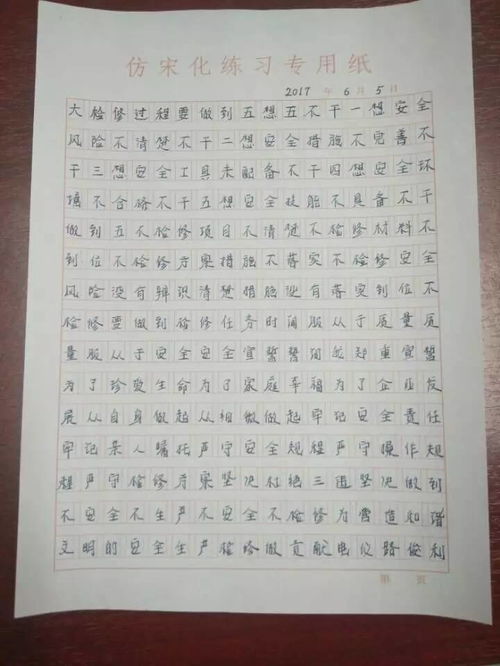 仿宋化练习专用纸
2017 年 6 月 5 日
大检修过程要做到五想五不干一想安全
风险不清楚不干二想安全措施不完善不
干三想安全工具未配备不干四想安全环
境不合格不干五想安全技能不具备不干
做到五不检修项目不清楚不检修材料不
到位不检修方案措施不落实不检修安全
风险没有辩识清楚措施没有落实到位不
检修要做到检修任务时间服从于质量质
量服从于安全安全宣誓誓词然郑重宣誓
为了珍爱生命为了家庭幸福为了企业发
展从自身做起从细微做起牢记安全责任
牢记亲人嘱托严守安全规程严守操作规
程严守检修方案坚决杜绝三违坚决做到
不安全不生产不安全不检修为营造和谐
文明的安全生产检修做贡献电仪路俊利
第 页